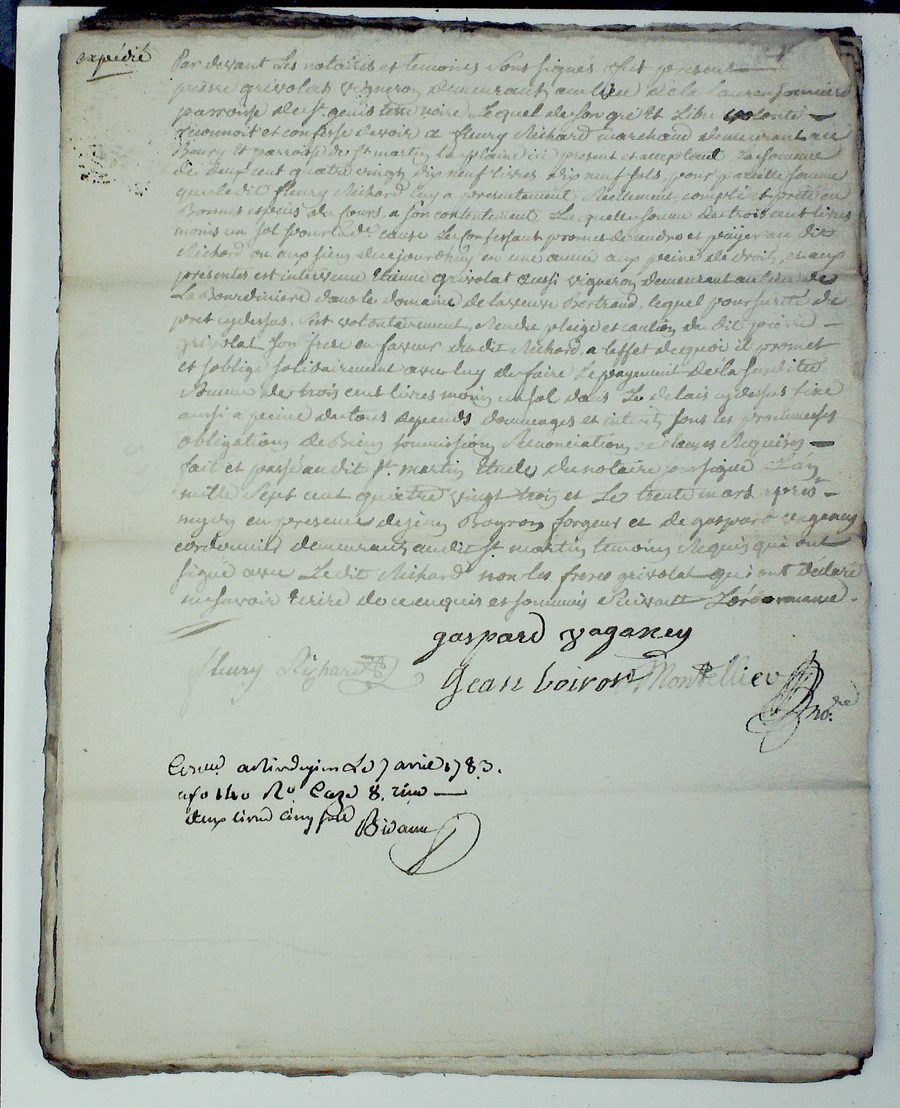 expédié
Par devant Les notaires et temoins Sous signes fut present
pierre grivolat vigneron demeurant au lieu de la
parroisse de St. genis terre noire Lequel de son gré Et Libre volonté
reconnoit et confesse devoir a fleury Richard marchand demeurant au
Bourg Et parroisse de St martin la plaine ici present et acceptant La somme
de Deux cent quatre vingt dix neuf livres dix neuf sols, pour pareille somme
que le dit fleury Richard luy a presentement Réellement compté et preté en
Bonnes especes du Cours a son contentement La quelle somme de trois cent livres
moins un sol pour la dte cause Le Confessant promet de rendre et payer au dit
Richard ou aux siens dicy en une année aux peine de droit, et aux
presentes est intervenu Etienne grivolat aussi vigneron demeurant au lieu de
La Bourdiniere dans le domaine de la veuve Bertrand, lequel pour sureté du
pret cy dessus, s'est volontairement Rendu pleige et caution du dit pierre
grivolat son frere en faveur du dit Richard a l'effet de quoi il promet
et s'oblige solidairement avec luy de faire Le payement de la susditte
Somme de trois cent livres moins un sol dans Le delais cy dessus fixé
aussi a peine de tous depends dommages et interets sous les promesses
obligations de Biens soumissions Renonciations et clauses Requises
fait et passé au dit St. martin Etude du notaire sousigné L'an
mille Sept cent quatre vingt trois et Le trente mars après
midy en presence de jean Boyron forgeur et de gaspard vaganey
cordonnier demeurants audit St martin temoins Requis qui ont
signé avec Le dit Richard non les freres grivolat qui ont declaré
ne savoir Ecrire de ce enquis et sommés Suivant L'ordonnance.
gaspard vaganey
fleury Richard Jean boiron Montellier
no.re
a Rivedegier Le 7 avril 1783.
fo 140 Ro Caze 8. reçu
deux livres cinq sols Bidaun